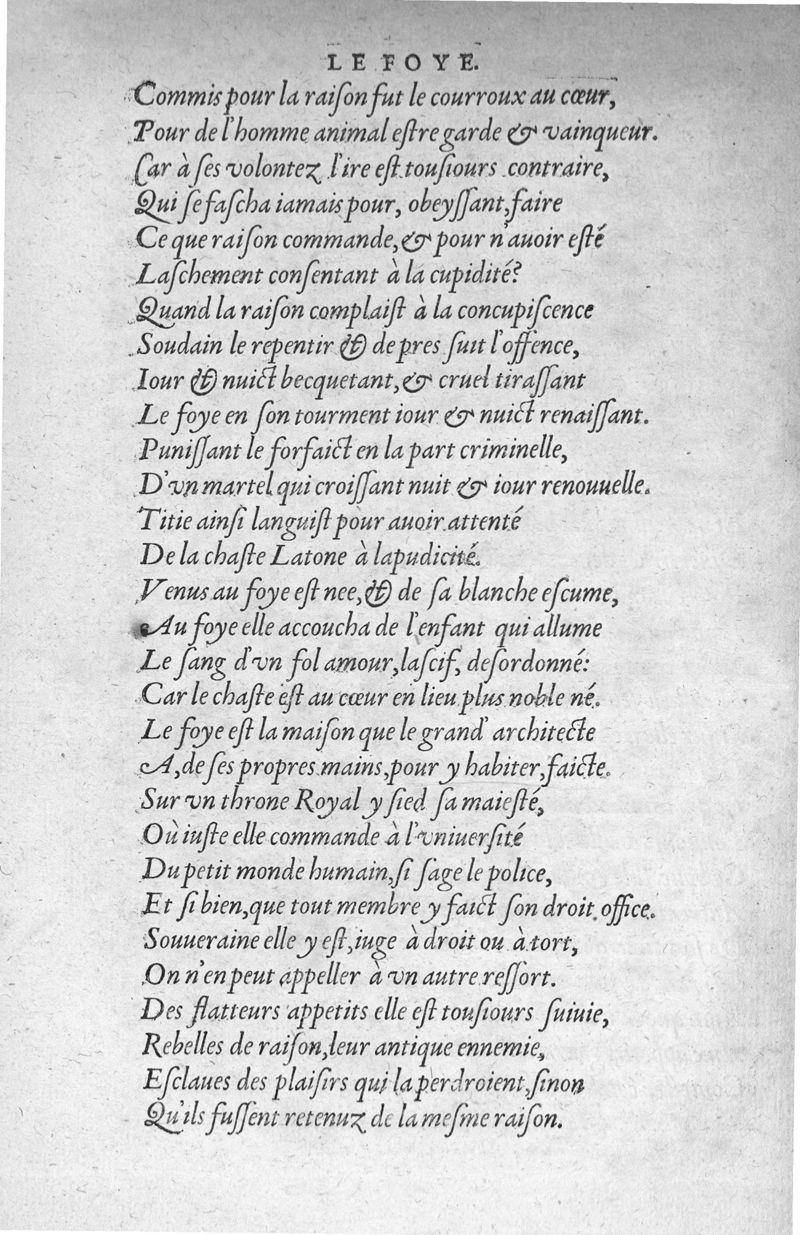 LE FOYE.
Commis pour la raiſon fut le courroux au cœur,
Pour de l'homme animal eſtre garde & vainqueur.
Car à ſes volontez l'ire eſt touſiours contraire,
Qui ſe faſcha iamais pour, obeyſſant, faire
Ce que raiſon commande, & pour n'auoir eſté
Laſchement conſentant à la cupidité?
Quand la raiſon complaiſt à la concupiſcence
Soudain le repentir & de pres ſuit l'offence,
Iour & nuict becquetant, & cruel tiraſſant
Le foye en ſon tourment iour & nuict renaiſſant.
Puniſſant le forfaict en la part criminelle,
D'vn martel qui croiſſant nuit & iour renouuelle.
Titie ainſi languiſt pour auoir attenté
De la chaſte Latone à lapudicité.
Venus au foye eſt nee, & de ſa blanche eſcume,
Au foye elle accoucha de l'enfant qui allume
Le ſang d'vn fol amour, laſcif, deſordonné:
Car le chaſte eſt au cœur en lieu plus noble né.
Le foye eſt la maiſon que le grand' architecte
A, de ſes propres mains, pour y habiter, faicte.
Sur vn throne Royal y ſied ſa maieſté,
Où iuſte elle commande à l'vniuerſité
Du petit monde humain, ſi ſage le police,
Et ſi bien, que tout membre y faict ſon droit office.
Souueraine elle y eſt, iuge à droit ou à tort,
On n'en peut appeller à vn autre reſſort.
Des flatteurs appetits elle eſt touſiours ſuiuie,
Rebelles de raiſon, leur antique ennemie,
Eſclaues des plaiſirs qui la perdroient, ſinon
Qu'ils fuſſent retenuz de la meſme raiſon.